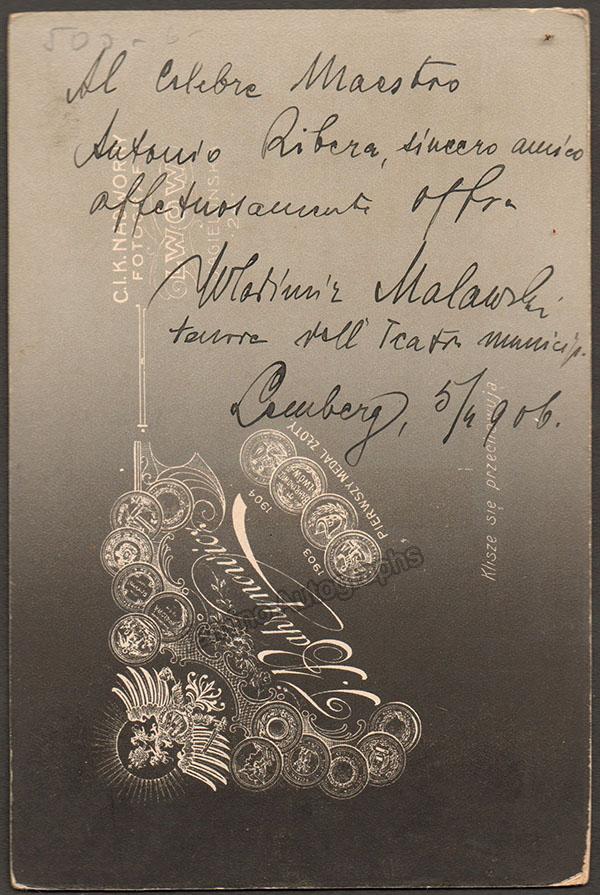 500 - 6-
Al celebre Maestro
Antonio Ribera, sincero amico
affettuosamente offre
Wladimir Malawski
tenore dell' Teatro municip.
Lemberg, 5/4 906.
C.I.K. NADWORNY
FOTOGRAF
LWÓW
JAGIELLOŃSKA
PIERWSZY MEDAL ZŁOTY
1904
1903
Klisze się przechowują